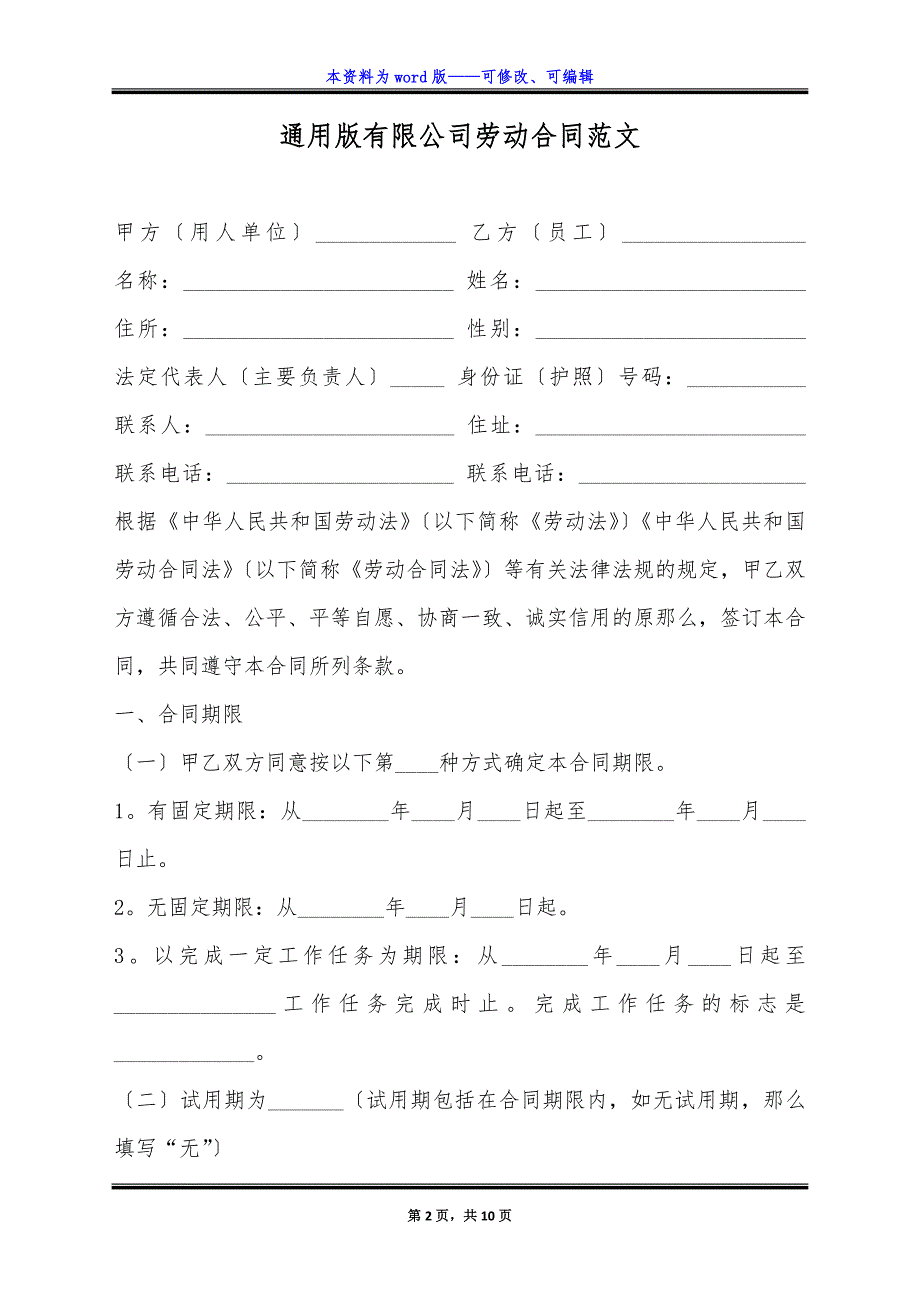 本资料为 word 版——可修改、可编辑
通用版有限公司劳动合同范文
甲方〔用人单位〕_____________ 乙方〔员工〕_________________
名称：_________________________ 姓名：_________________________
住所：_________________________ 性别：_________________________
法定代表人〔主要负责人〕_____ 身份证〔护照〕号码：___________
联系人：_______________________ 住址：_________________________
联系电话：_____________________ 联系电话：_____________________
根据《中华人民共和国劳动法》〔以下简称《劳动法》〕《中华人民共和国
劳动合同法》〔以下简称《劳动合同法》〕等有关法律法规的规定，甲乙双
方遵循合法、公平、平等自愿、协商一致、诚实信用的原那么，签订本合
同，共同遵守本合同所列条款。
一、合同期限
〔一〕甲乙双方同意按以下第____种方式确定本合同期限。
1。有固定期限：从________年____月____日起至________年____月____
日止。
2。无固定期限：从________年____月____日起。
3。以完成一定工作任务为期限：从________年____月____日起至
_______________工作任务完成时止。完成工作任务的标志是
_____________。
〔二〕试用期为_______〔试用期包括在合同期限内，如无试用期，那么
填写“无”〕
第 2 页，共 10 页